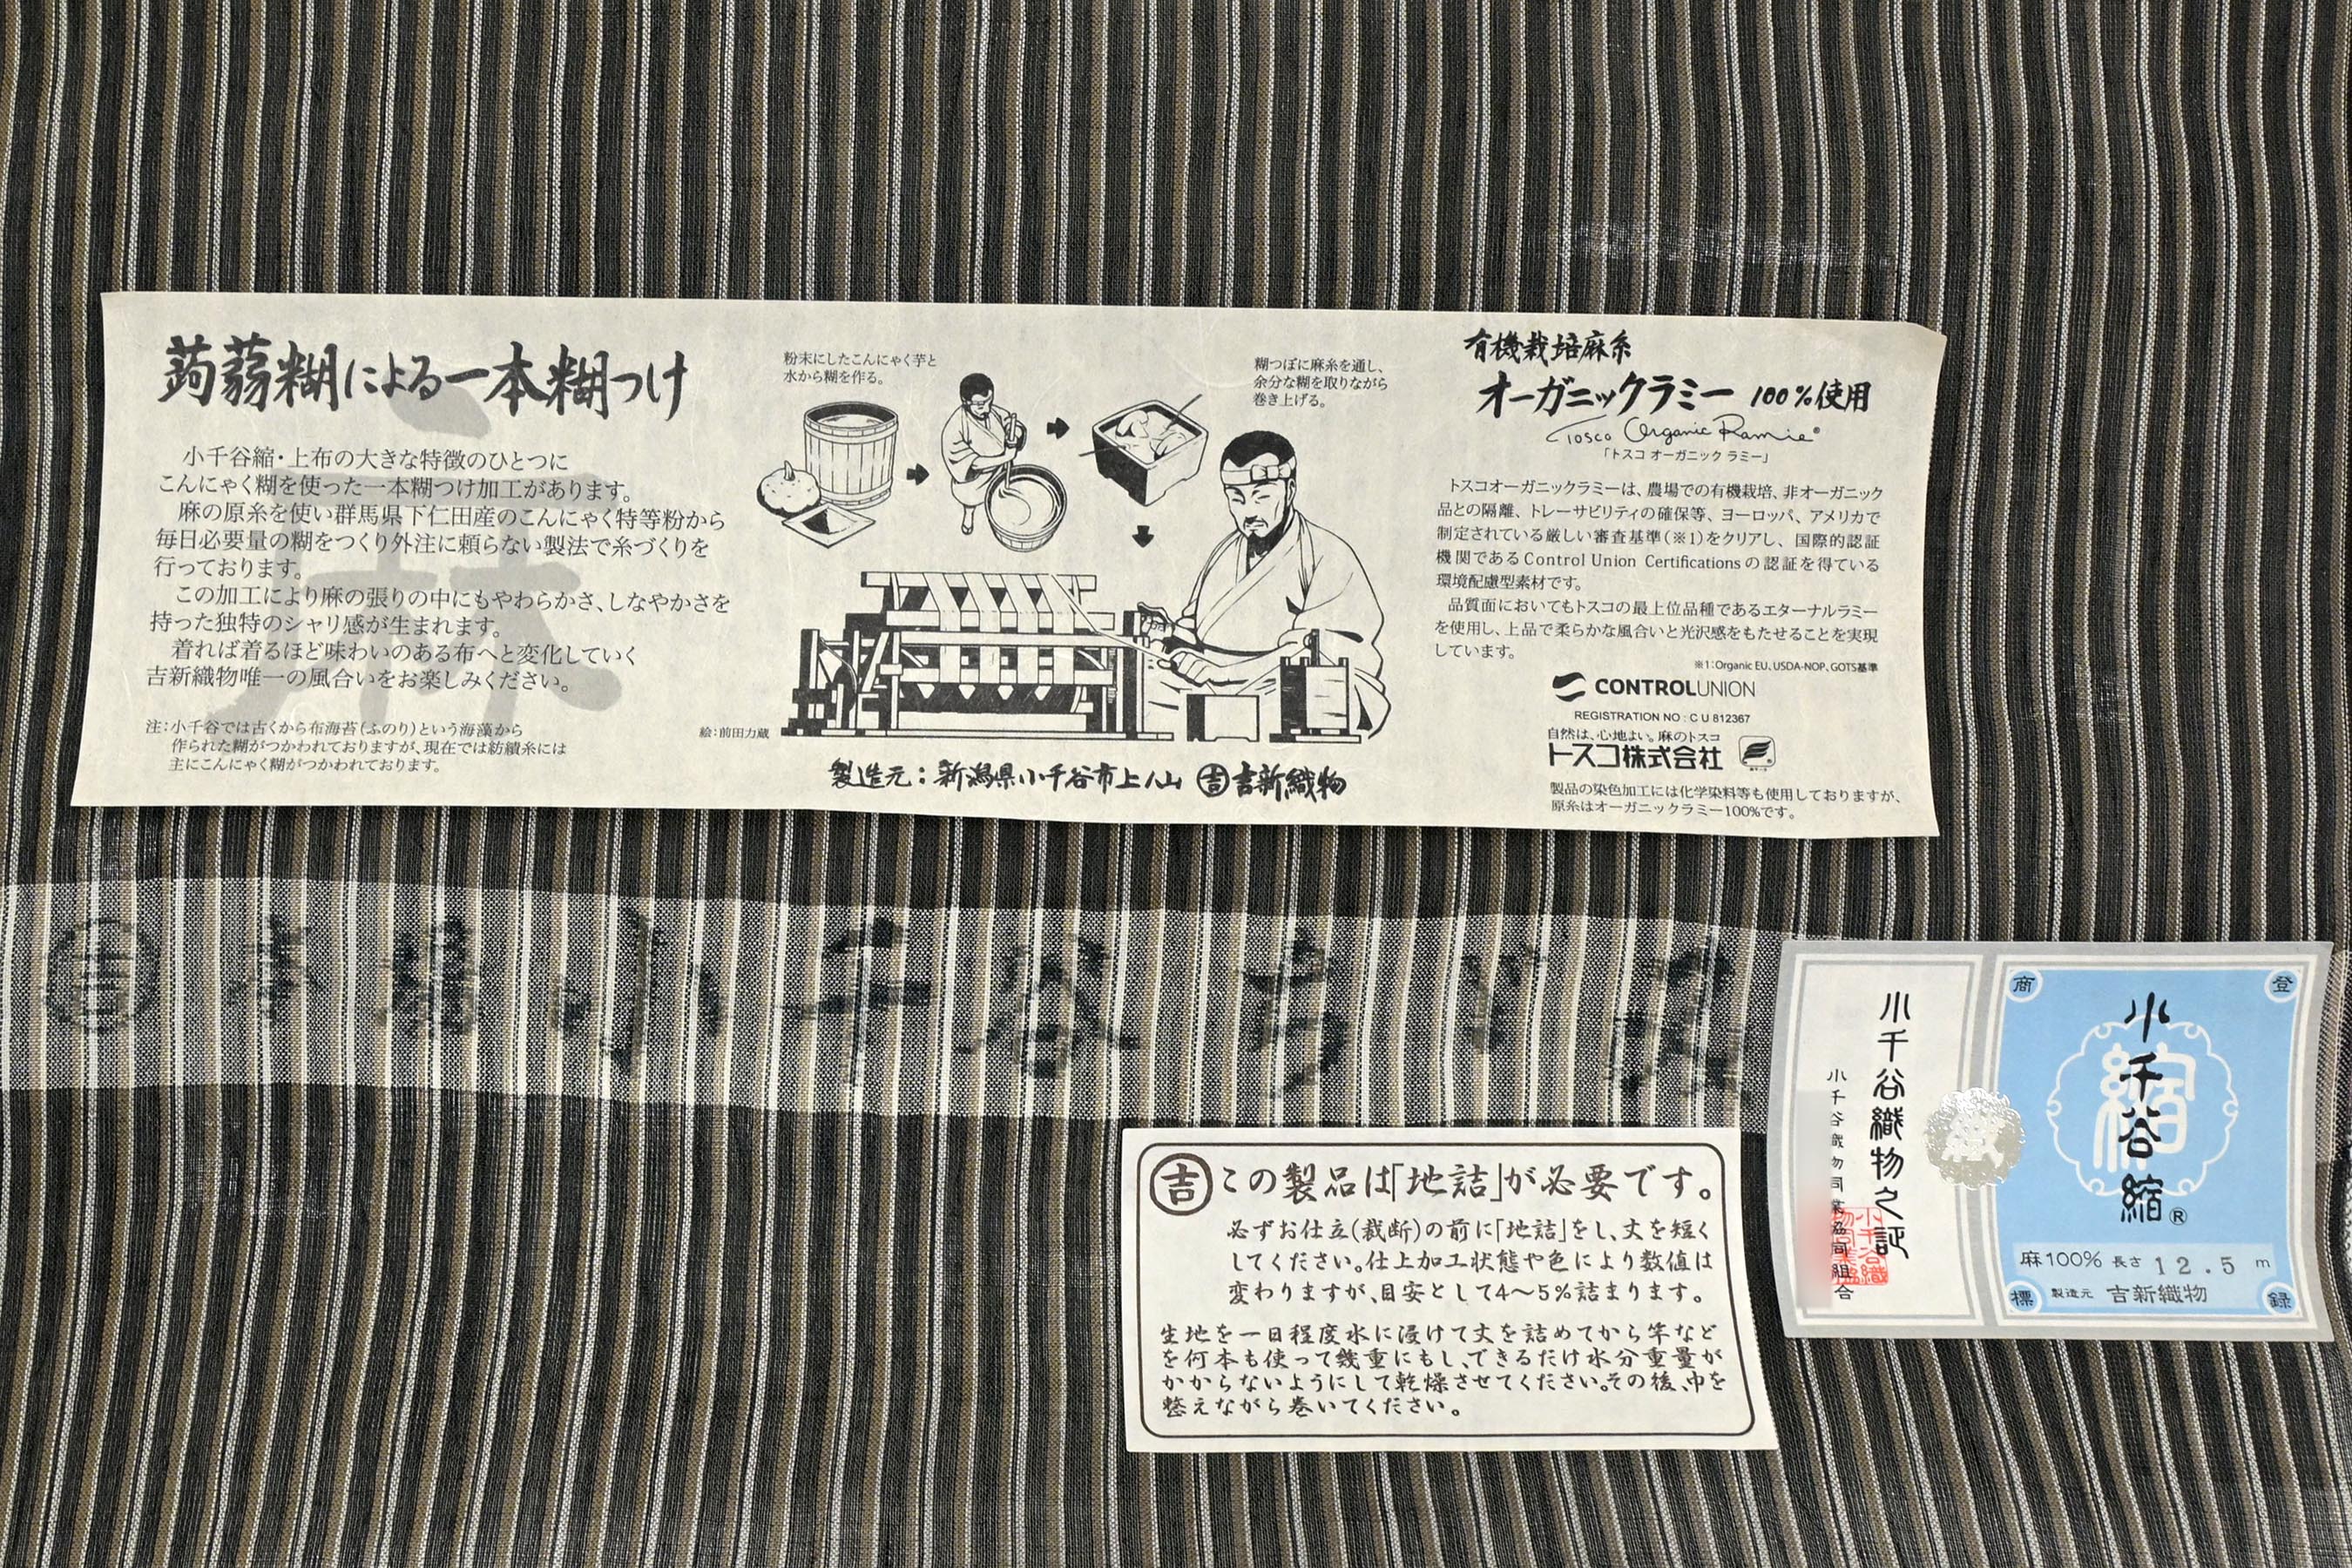 蒟蒻糊による一本糊つけ
小千谷縮・上布の大きな特徴のひとつに
こんにゃく糊を使った一本糊つけ加工があります。
麻の原糸を使い群馬県下仁田産のこんにゃく特等粉から
毎日必要量の糊をつくり外注に頼らない製法で糸づくりを
行っております。
この加工により麻の張りの中にもやわらかさ、しなやかさを
持った独特のシャリ感が生まれます。
着れば着るほど味わいのある布へと変化していく
吉新織物唯一の風合いをお楽しみください。
麻
注:小千谷では古くから布海苔(ふのり)という海藻から
作られた糊がつかわれておりますが、現在では紡績糸には
主にこんにゃく糊がつかわれております。
粉末にしたこんにゃく芋と
水から糊を作る。
糊つぼに麻糸を通し、
余分な糊を取りながら
巻き上げる。
絵:前田力蔵
製造元:新潟県小千谷市上ノ山 吉 吉新織物
有機栽培麻糸
オーガニックラミー 100%使用
Tosco Organic Ramie®
「トスコ オーガニック ラミー」
トスコオーガニックラミーは、農場での有機栽培、非オーガニック
品との隔離、トレーサビリティの確保等、ヨーロッパ、アメリカで
制定されている厳しい審査基準(※1)をクリアし、国際的認証
機関であるControl Union Certificationsの認証を得ている
環境配慮型素材です。
品質面においてもトスコの最上位品種であるエターナルラミー
を使用し、上品で柔らかな風合いと光沢感をもたせることを実現
しています。
※1:Organic EU、USDA-NOP、GOTS基準
CONTROLUNION
REGISTRATION NO : C U 812367
自然は、心地よい。麻のトスコ
トスコ株式会社
製品の染色加工には化学染料等も使用しておりますが、
原糸はオーガニックラミー100%です。
吉 本場小千谷
吉 この製品は「地詰」が必要です。
必ずお仕立(裁断)の前に「地詰」をし、丈を短く
してください。仕上加工状態や色により数値は
変わりますが、目安として4～5%詰まります。
生地を一日程度水に浸けて丈を詰めてから竿など
を何本も使って幾重にもし、できるだけ水分重量が
かからないようにして乾燥させてください。その後、巾を
整えながら巻いてください。
登録商標
縮
小千谷縮®
麻100% 長さ 12.5 m
製造元 吉新織物
小千谷織物之証
小千谷織物同業協同組合